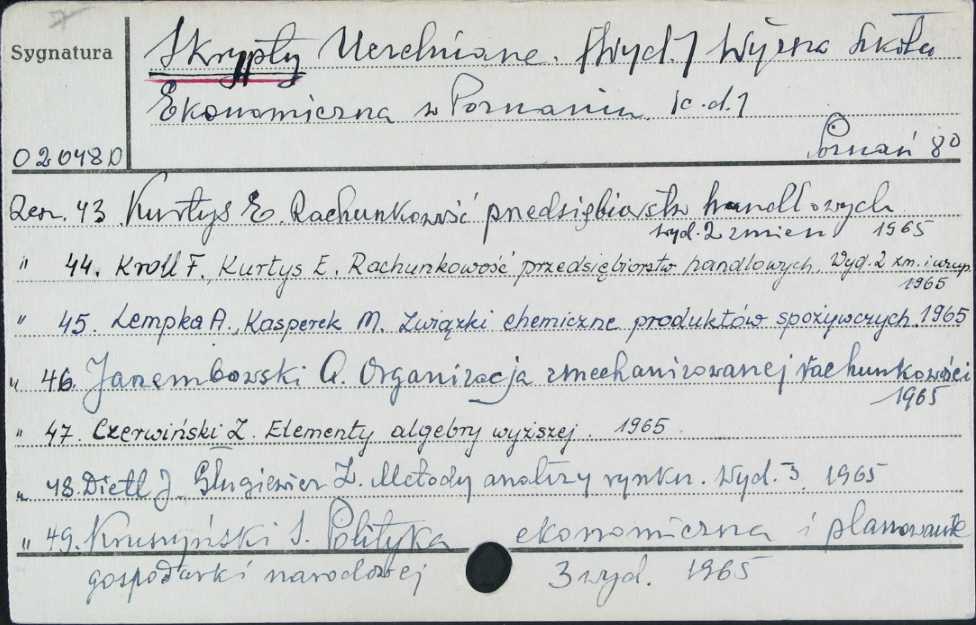 Sygnatura
Skrypty Uczelniane. [Wyd.] Wyższa Szkoła
Ekonomiczna w Poznaniu [c.d.]
020480
Poznań 8°
Zesz. 43 Kurtys E. Rachunkowość przedsiębiorstw handlowych
wyd. 2 zmien 1965
" 44. Kroll F., Kurtys E. Rachunkowość przedsiębiorstw handlowych. Wyd. 2 zm. i uzup.
1965
" 45. Lempka A., Kasperek M. Związki chemiczne produktów spożywczych. 1965
" 46. Jarzembowski A. Organizacja zmechanizowanej rachunkowości
1965
" 47. Czerwiński Z. Elementy algebry wyższej. 1965
" 48. Dietl J. Z. Metody analizy rynku. Wyd. 3. 1965
" 49. Kruszyński S. Polityka ekonomiczna i planowanie
gospodarki narodowej 3 wyd. 1965